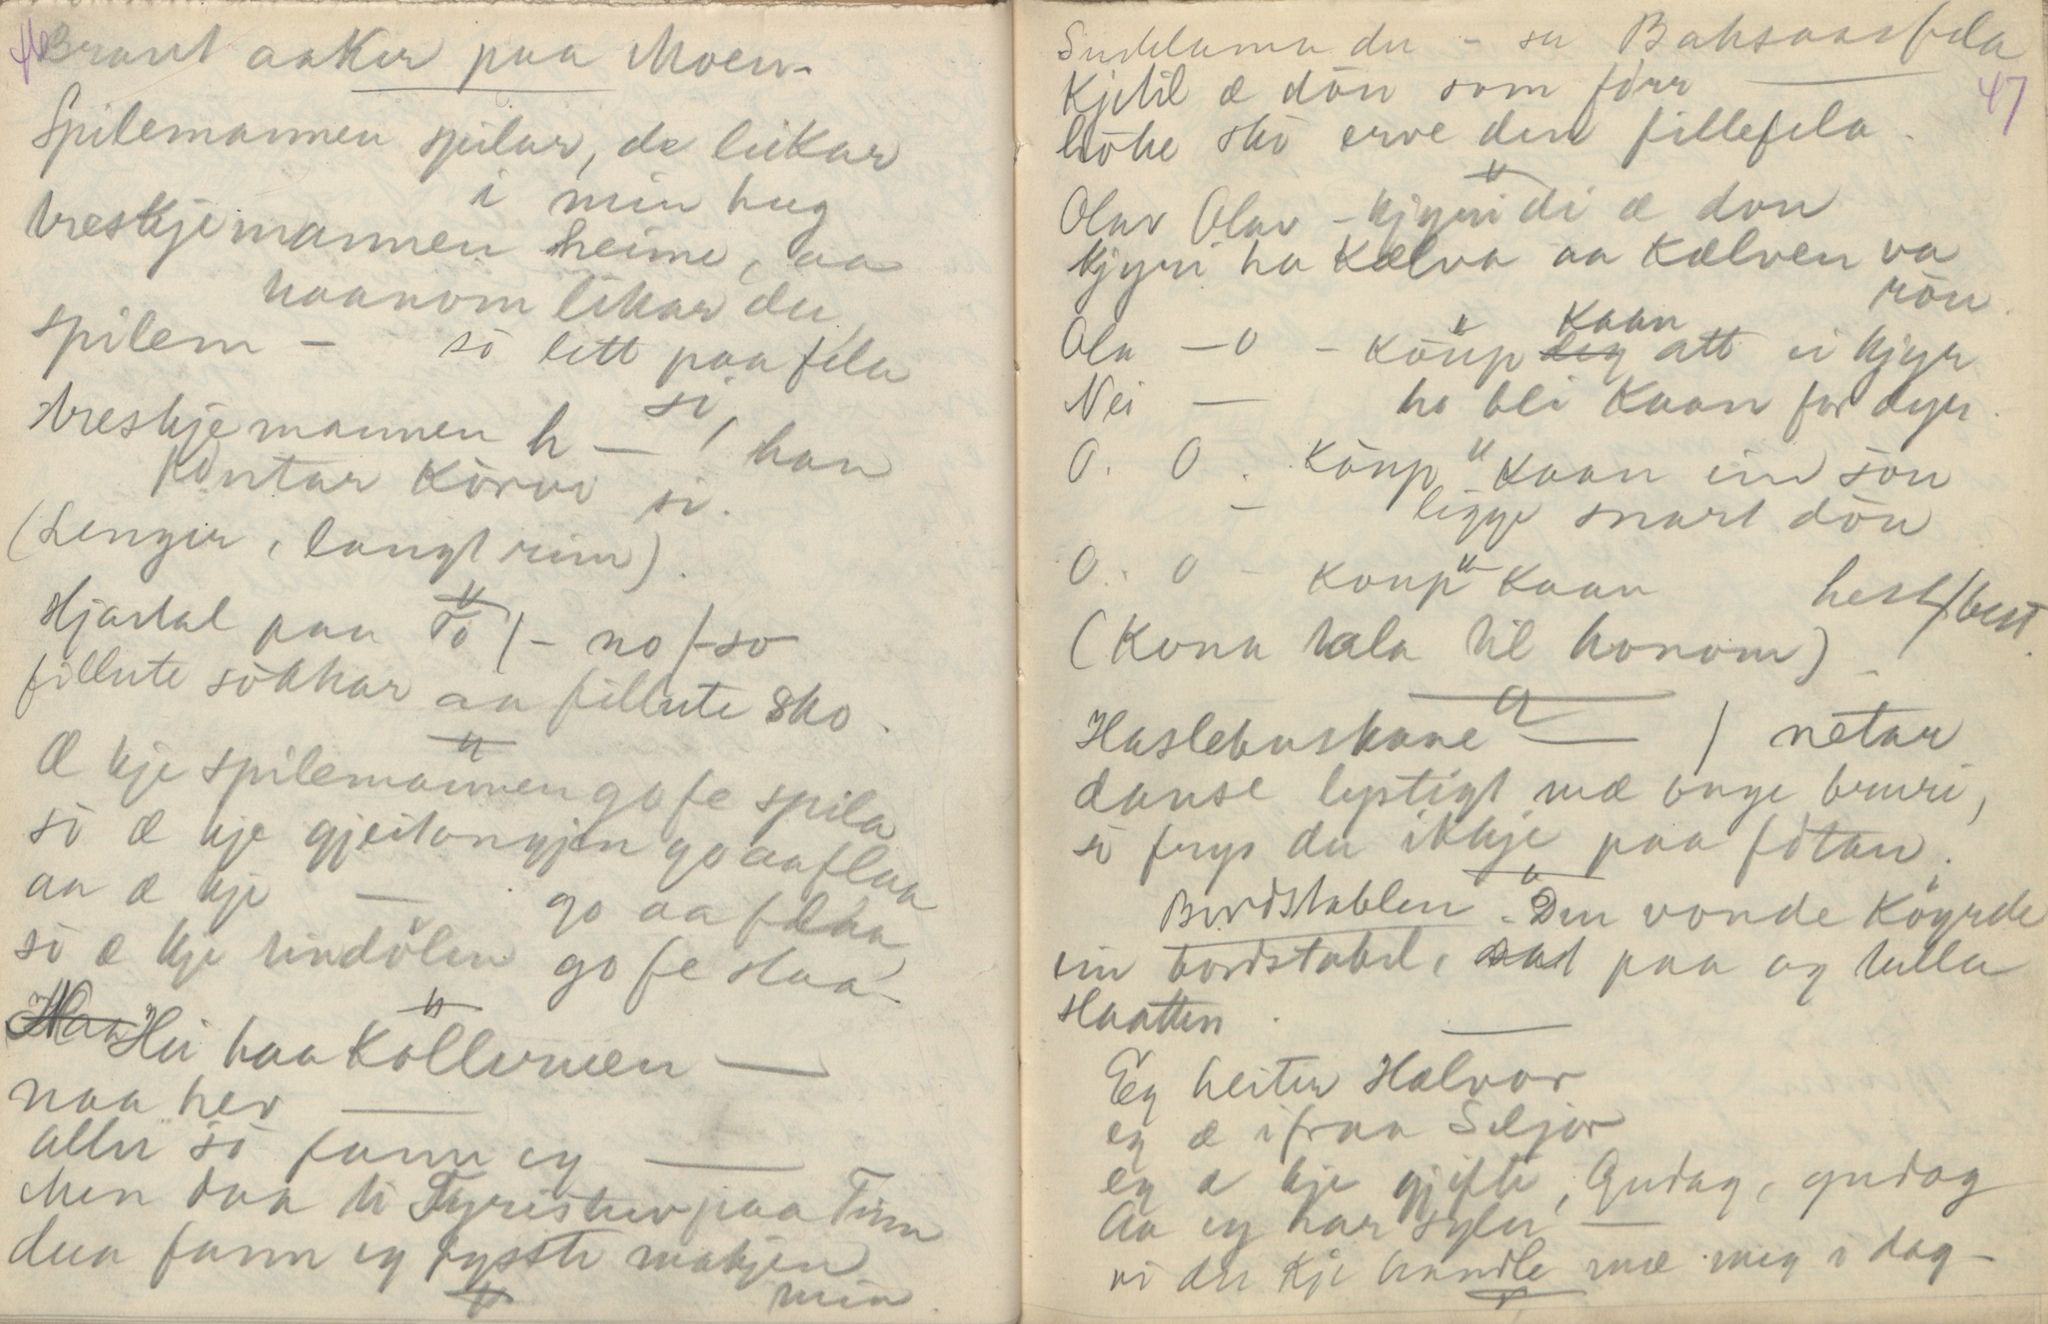 Brant aaker paa Moen.
Spilemannen spilar, de leikar
i min hug
treskjemannen heime, aa
haanom likar du
spilem — so lett paa fela
si,
treskjemannen h — han
körvi si.
(Lenger, langt rim).
Hjartdal paa Tö /- no /- so
fillute sökkar aa fillute sko.
Æ kje spilemannen go fe spila
so æ kje gjeitongjen go aa flaa
aa æ kje — go aa flaa
so æ kje tindölen go fe slaa
Hei haa Kölleruen —
naa her —
aller so fann eg —
Men daa ti paa Tinn
daa fann eg fysste makjen
min.
47
du - sa Baksaasfela
Kjetil æ dön som förr
höke sko erve den fillefela.
Olav Olav - kjyri di æ don
kjyri ha kælva aa kælven va
rön.
Ola — O - köup kaan att ei kjyr
Nei — ho bli kaan for dyr.
O. O. köup kaan ein son
— ligge snart dön
O. O - koup kaan hest/best.
(Kona tala til honom)
Haslebuskane — / netar
danse lystigt mæ onge bruri,
so frys du ikkje paa fötan.
Bordstablen. Den vonde köyrde
ein bordstabel, sat paa og tulla
slaatten.
Eg heiter Halvor
eg æ ifraa Seljor
eg æ kje gjifte, Gudag, gudag
Aa eg har syler —
vi du kje handle mæ meg i dag —